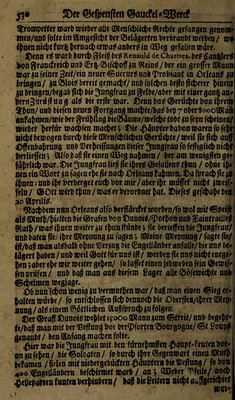 530 Der Gespensten Gauckel-Werck
Trompetter ward wider alle Menschliche Rechte gefangen genom-
men/und solte im Angesicht der Belägerten verbrandt werden/ wo
ihnen nicht kurtz hernach etwas anders in Weg gefallen wäre.
Denn es ward durch Fleiß des Renauld de Chartres, des Cantzlers
von Franckreich und Ertz-Bischoff zu Reins/ der ein grosser Mann
war zu seiner Zeit/ein neuer Succurs und Probiant in Orleans zu
bringen/ zu Blois bereit gemacht/ und solchen desto sicherer hinein
zu bringen/ begab sich die Jungfrau zu Felde/ aber mit einer gantz an-
dern Zurüstung als das erste mal. Denn das Gerüchte von ihrem
Thun/ und diesen neuen Fortgang machte/ daß bey 7 oder 8000 Mann
ankahmen/wie der Frühling die Bäume/welche todt zu seyn scheinen/
wieder herfür wachsen machet. Die Häupter davon waren so sehr
nicht bewogen durch diese Menschliche Gerüchte/ weil sie sich auff
Offenbahrung und Verheissungen dieser Jungfrau so festiglich nicht
verliessen. Also daß sie einen Weg nahmen/ der am wenigsten ge-
fährlich war. Die Jungfrau ließ sie ihres Gefallens thun/ ohne ihnen
ein Wort zu sagen ehe sie nach Orleans kahmen. Da sprach sie zu
ihnen: und ihr verberget euch vor mir/ aber ihr wisset nicht zwei-
feln/ GOtt wird thun/ was er verordnet hat. Dieses geschahe den
20 Aprilis.
Nachdem nun Orleans also verstärcket worden/ so wol mit Speise
als Muth/hielten die Grafen von Dunois/Pothon und Saintrailles
Rath/ was ihnen weiter zu thun stünde: sie berieffen die Jungfrau/
und baten sie/ ihre Meynung zu sagen: Meine Meynung/ sagte sie/
ist/daß man alsbald ohne Verzug die Engelländer anfalle/ die uns be-
lägert haben/ und weil Gott für uns ist/ werden sie uns nicht entge-
hen: aber ehe wir weiter gehen/ so lasset einen jedweden sein Gewis-
sen prüfen/ und daß man aus diesem Läger alle Bösewichte und
Schelmen weglage.
Ob nun schon wenig zu vermuthen war/ daß man einen Sieg er-
halten würde/ so entschlossen sich dennoch die Obersten/ihrer Mey-
nung/ als einem Göttlichen Ausspruch zu folgen.
Der Graff Dunois wehlet 15000 Mann zum Streit/ und begeh-
te/ daß man mit der Vestung vor der Pforten Bourgogne/ St. Loups
genandt/ den Anfang machen solte.
Hier was die Jungfrau mit den fürnehmsten Haupt-leuten vor-
an zu sehen/ die Soldaten/ so durch ihre Gegenwart einen Muth
bekamen/ fielen mit niedergebückten Häuptern die Vestung/ so von
400 Engelländern beschirmet ward/ an: weder Pfeile/ noch
Hellepartten kunten verhindern/ daß die Leitern nicht auffgerichtet
wur-